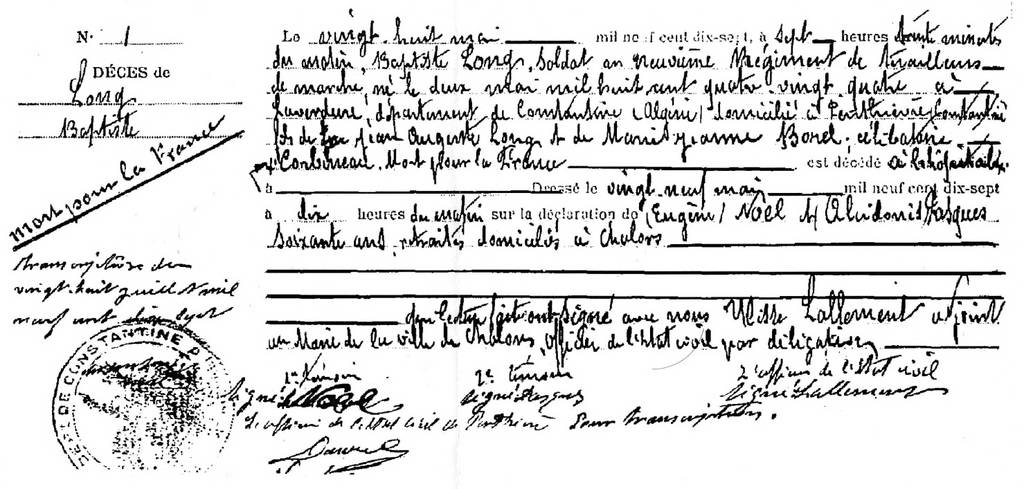 N° 1
DÉCES de
Long
Baptiste
mort pour la France
transcription du
vingt-huit juillet mil
neuf cent dix sept
DE CONSTANTINE
Le vingt-huit mai mil neuf cent dix-sept, à sept heures trente minutes
du matin, Baptiste Long, Soldat au neuvième Régiment de tirailleurs
de marche, né le deux mai mil huit cent quatre vingt quatre à
Laverdure, département de Constantine (Algérie) domicilié à Penthièvre (Constantine)
fils de Jean Auguste Long et de Marie Jeanne Borel; célibataire
Corbineau. Mort pour la France est décédé à l'hôpital
à Dressé le vingt neuf mai mil neuf cent dix-sept
à dix heures du matin sur la déclaration de Eugène Noël et Jasques
soixante ans, retraités domiciliés à Chalons
lecture faite ont signé avec nous Ulisse Lallement adjoint
au Maire de la ville de Chalons, officier de l'état civil par délégation
1er témoin 2e témoin L'officier de l'état civil
Signé Noël Signé Jasques Signé Lallement
L'officier de l'état civil de Penthièvre Pour transcription.